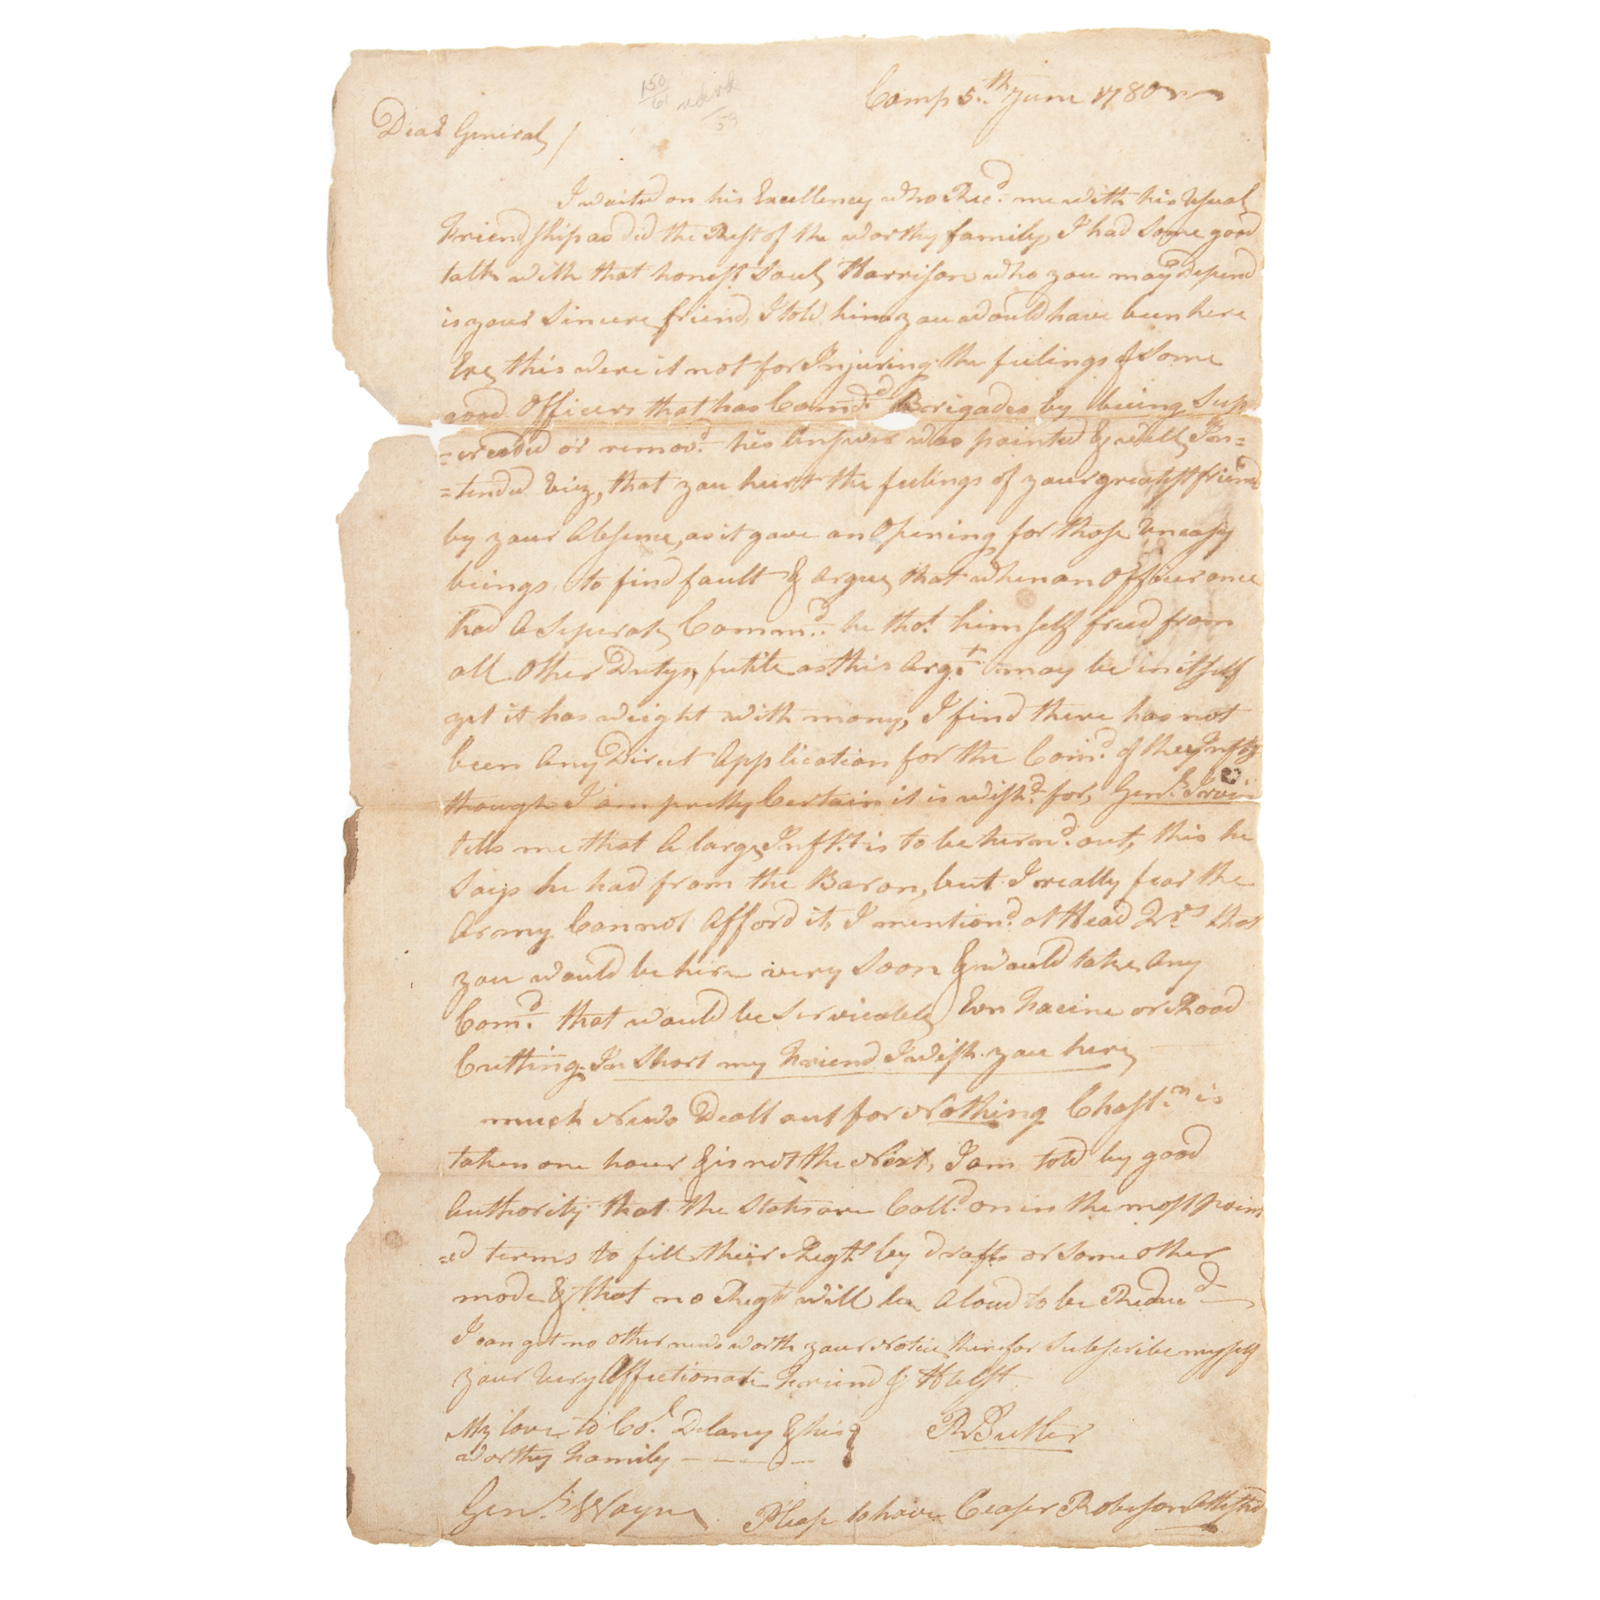 150
61
59
Camp 5.th June 1780
Dear General /
I waited on his Excellency who Rec.d me with his Usual
Friendship as did the Rest of the worthy family, I had some good
talk with that honest Soul Harrison who you may depend
is your Sincere friend, I told him you would have been here
Ere this were it not for Injuring the feelings of Some
good Officers that has Com.d Brigades by being Sup
=erceded or remov.d his answer was pointed & well In=
=tended Viz, that you hurt the feelings of your greatest friend
by your Absence, as it gave an Opening for those Uneasy
beings to find fault & argue, that when an Officer once
had a Seperate Comm.d he tho.t himself freed from
all other Dutys, futile as this Arg.t may be in itself
yet it has weight with many, I find there has not
been Any Direct Application for the Com.d of the Inf.ty
though I am pretty Certain it is wish.d for, Gen.l Irvin
tells me that a large Inf.t is to be turn.d out, this he
Says he had from the Baron, but I really fear the
Army Cannot Afford it, I mention.d at Head Q.rs that
you would be here very Soon & would take Any
Com.d that would be Serviceable, Evn facine or Road
Cutting, In Short my Friend I wish you here,
much News Dealt out for Nothing Chast.n is
taken one hour & is not the Next, I am told by good
Authority that the States are Call.d on in the most Point
=ed terms to fill their Regt.s by drafts or Some other
mode & that no Regt will be aloud to be Reduc.d
I can get no other news worth your Notice therefor Subscribe myself
your Very Affectionate Friend & H.blst
My love to Co.l Delany & his
worthy family - - - -
R Butler
Gen.l Wayne
Please to have Ceaser Roberson Attested